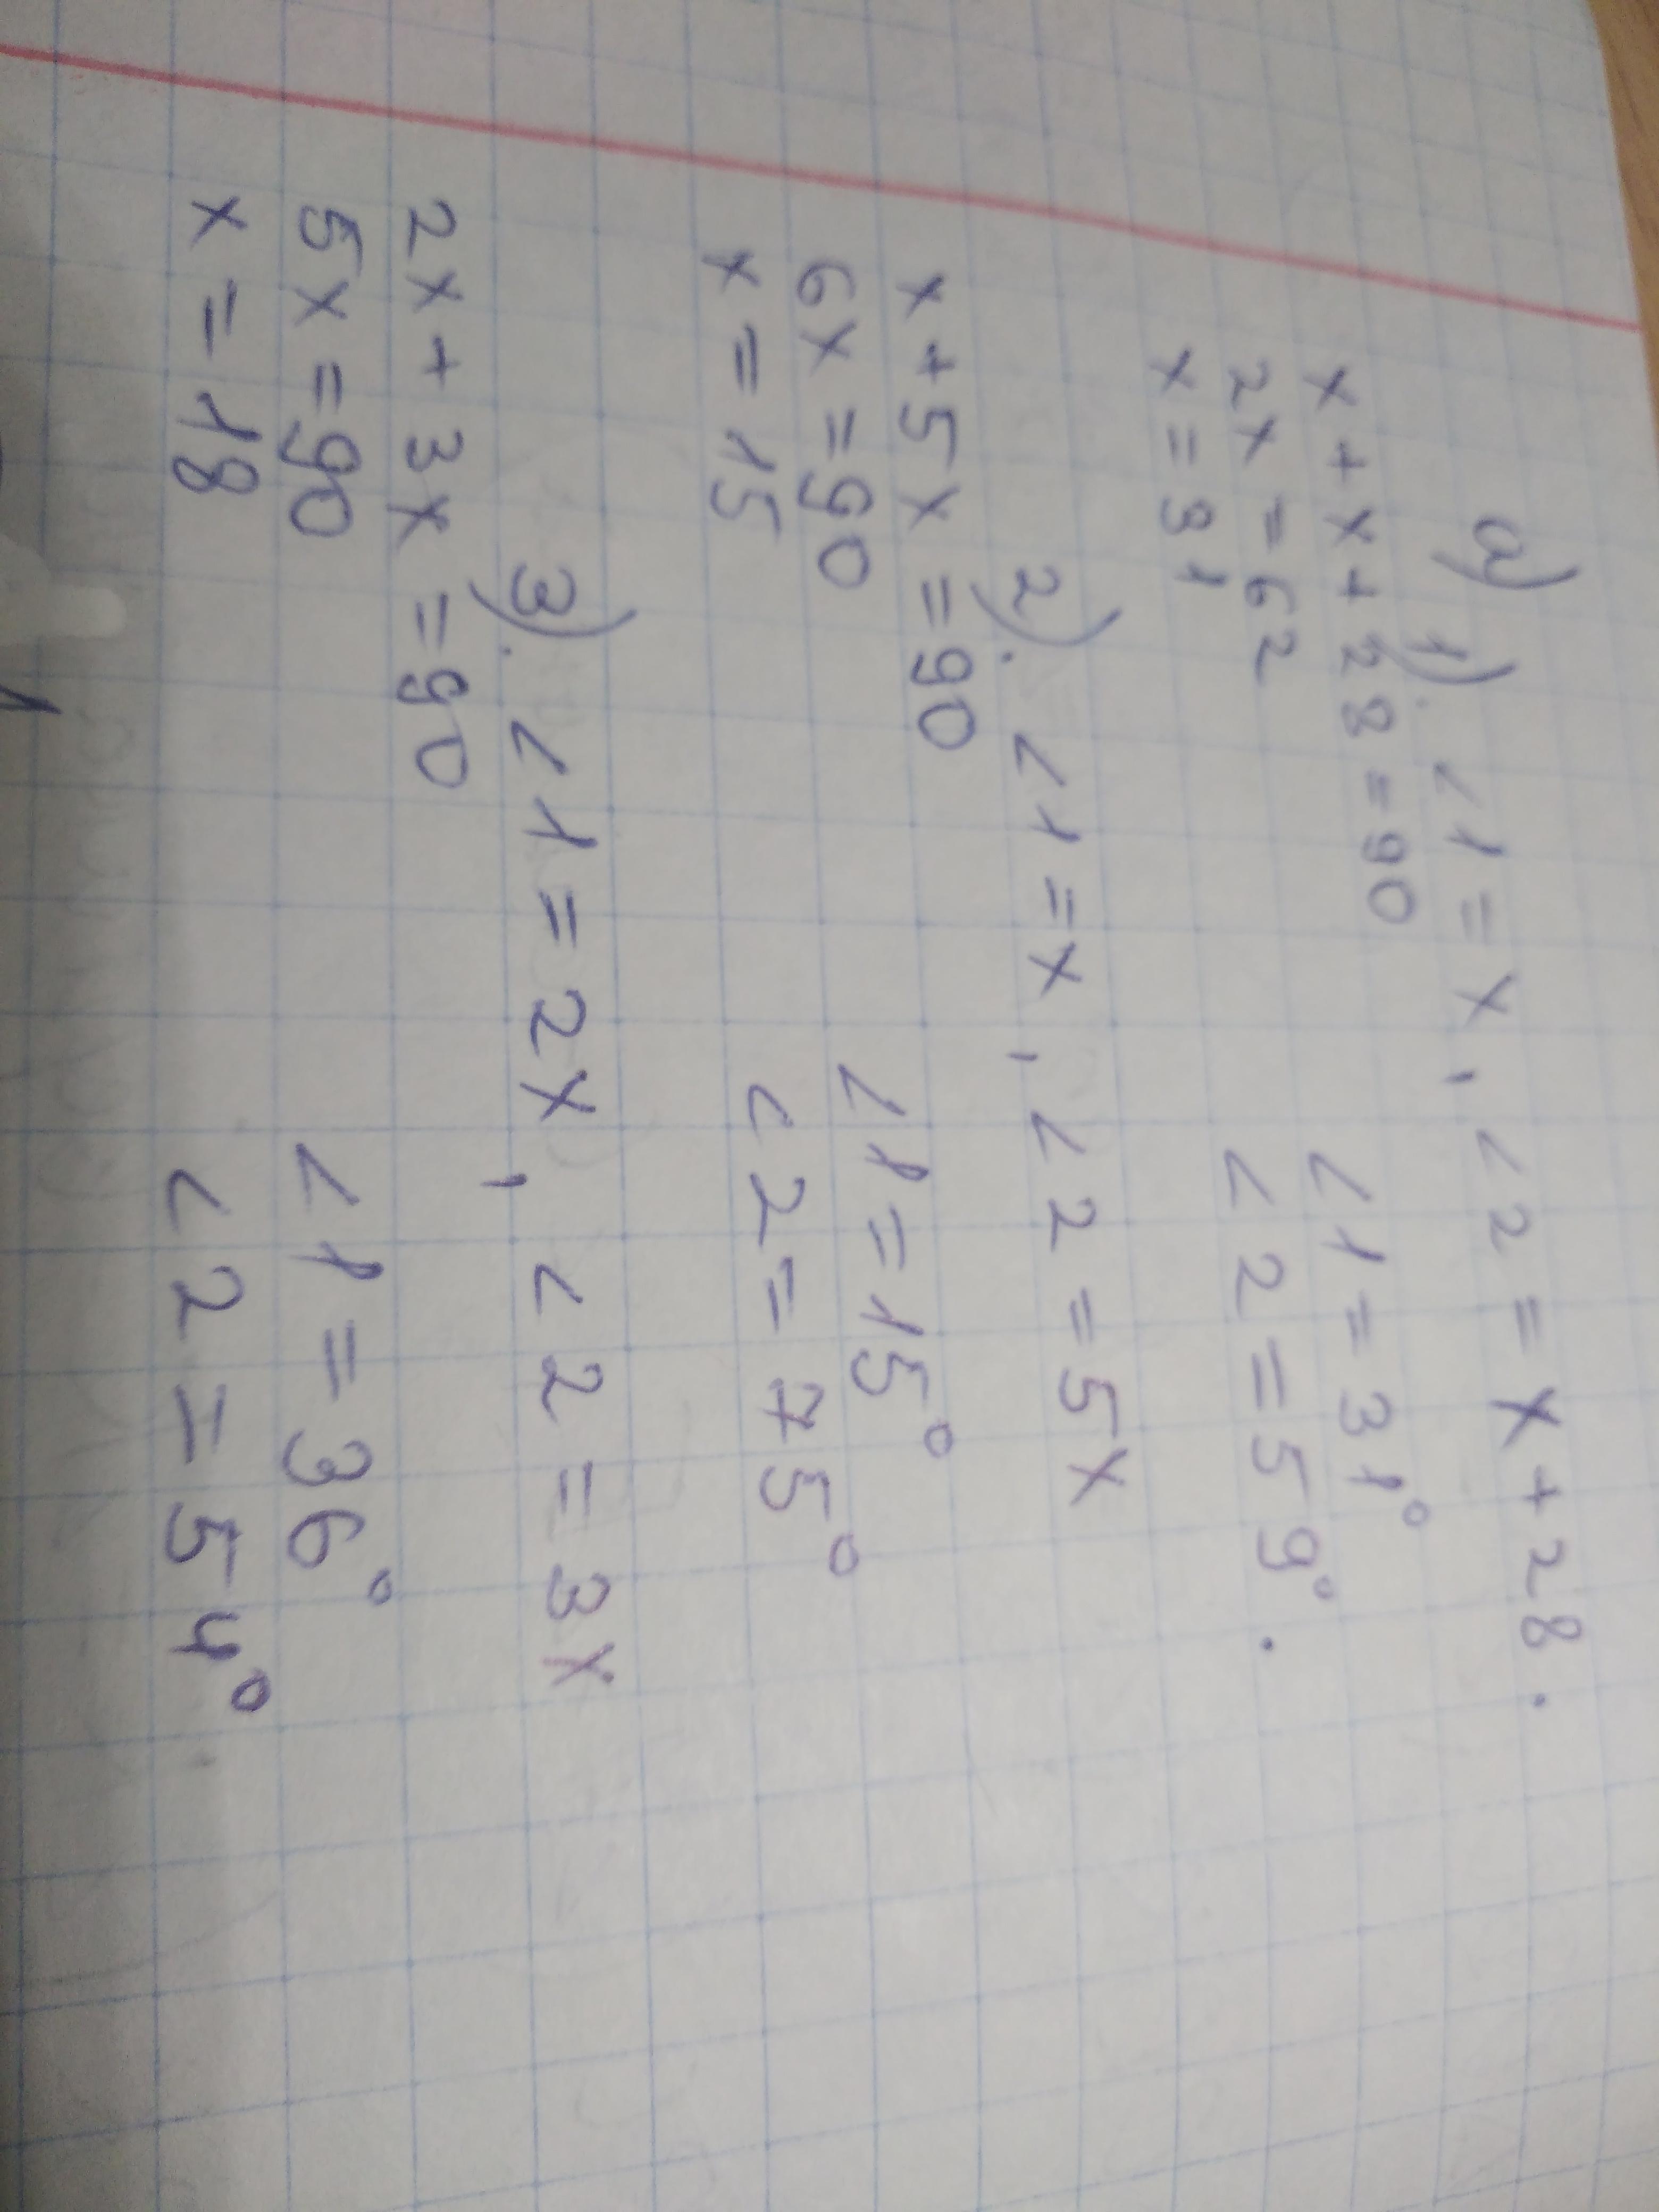 а)
1). ∠1 = x, ∠2 = x + 28.
x + x + 28 = 90
2x = 62
x = 31
∠1 = 31°
∠2 = 59°.
2). ∠1 = x, ∠2 = 5x
x + 5x = 90
6x = 90
x = 15
∠1 = 15°
∠2 = 75°
3). ∠1 = 2x, ∠2 = 3x
2x + 3x = 90
5x = 90
x = 18
∠1 = 36°
∠2 = 54°